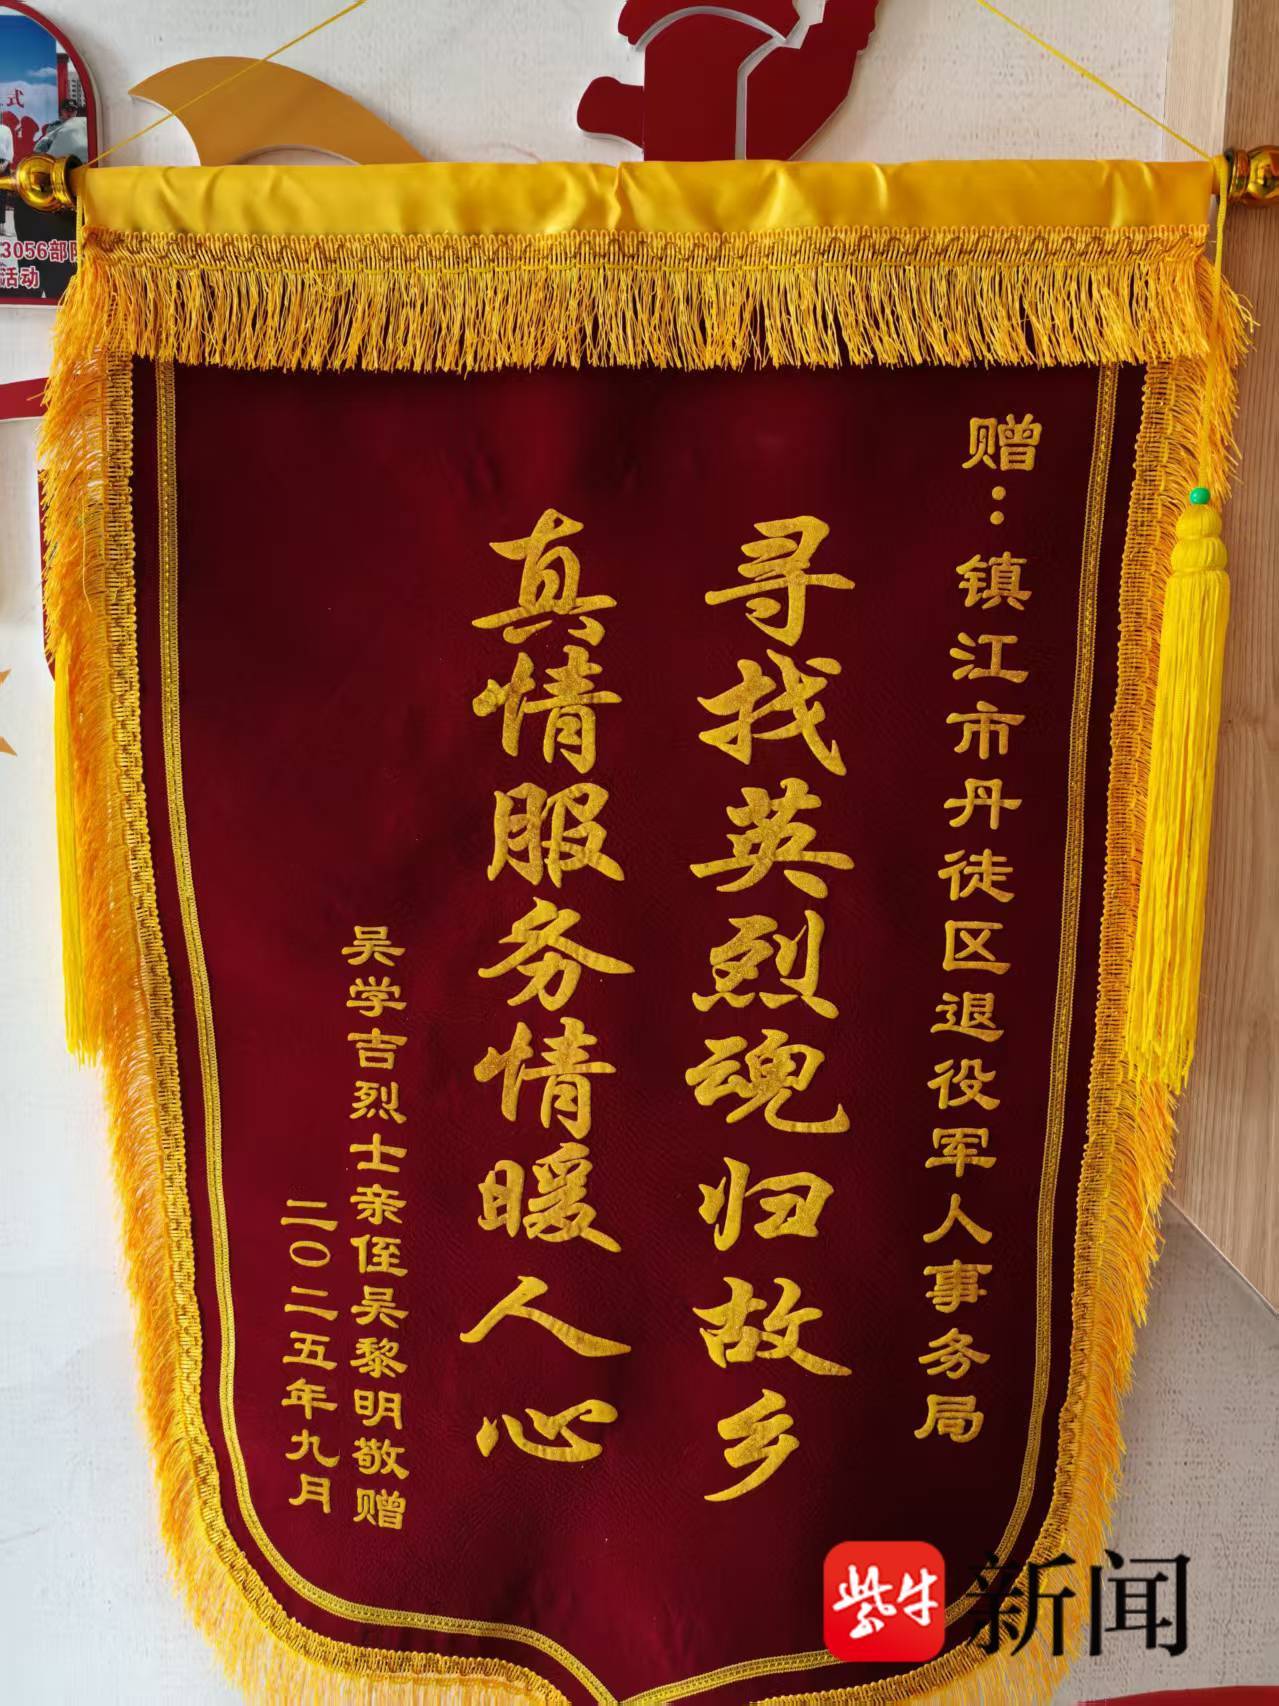 赠：镇江市丹徒区退役军人事务局
寻找英烈魂归故乡
真情服务情暖人心
吴学吉烈士亲侄吴黎明敬赠
二〇二五年九月
3056部
活动
紫牛新闻